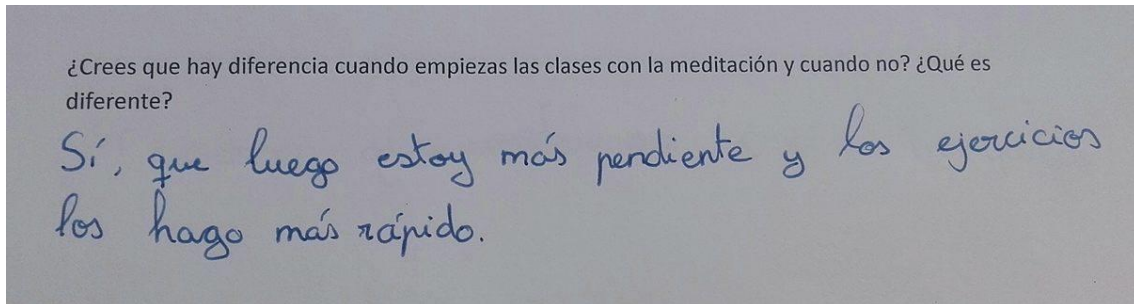 ¿Crees que hay diferencia cuando empiezas las clases con la meditación y cuando no? ¿Qué es
diferente?
Sí, que luego estoy más pendiente y los ejercicios
los hago más rápido.